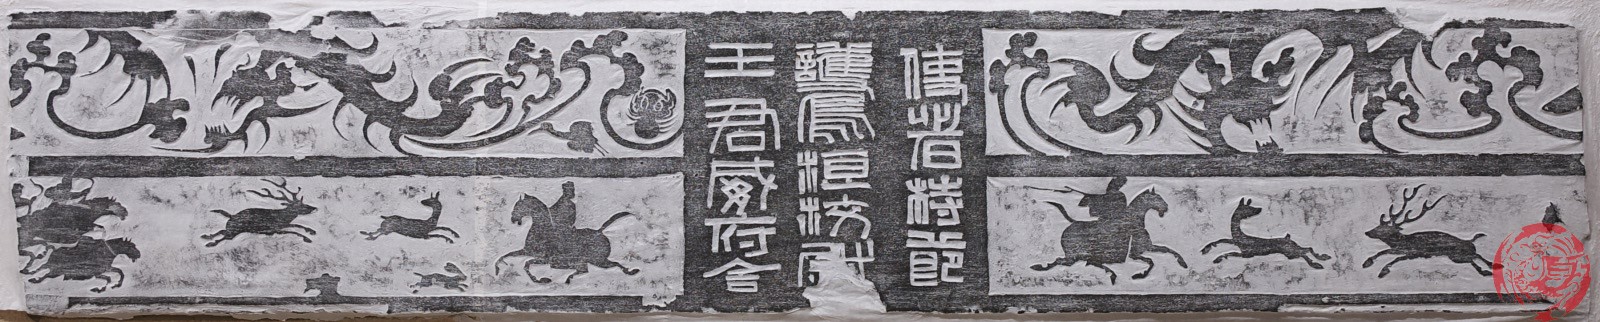 使者持節
護烏桓校尉
王君威府舍